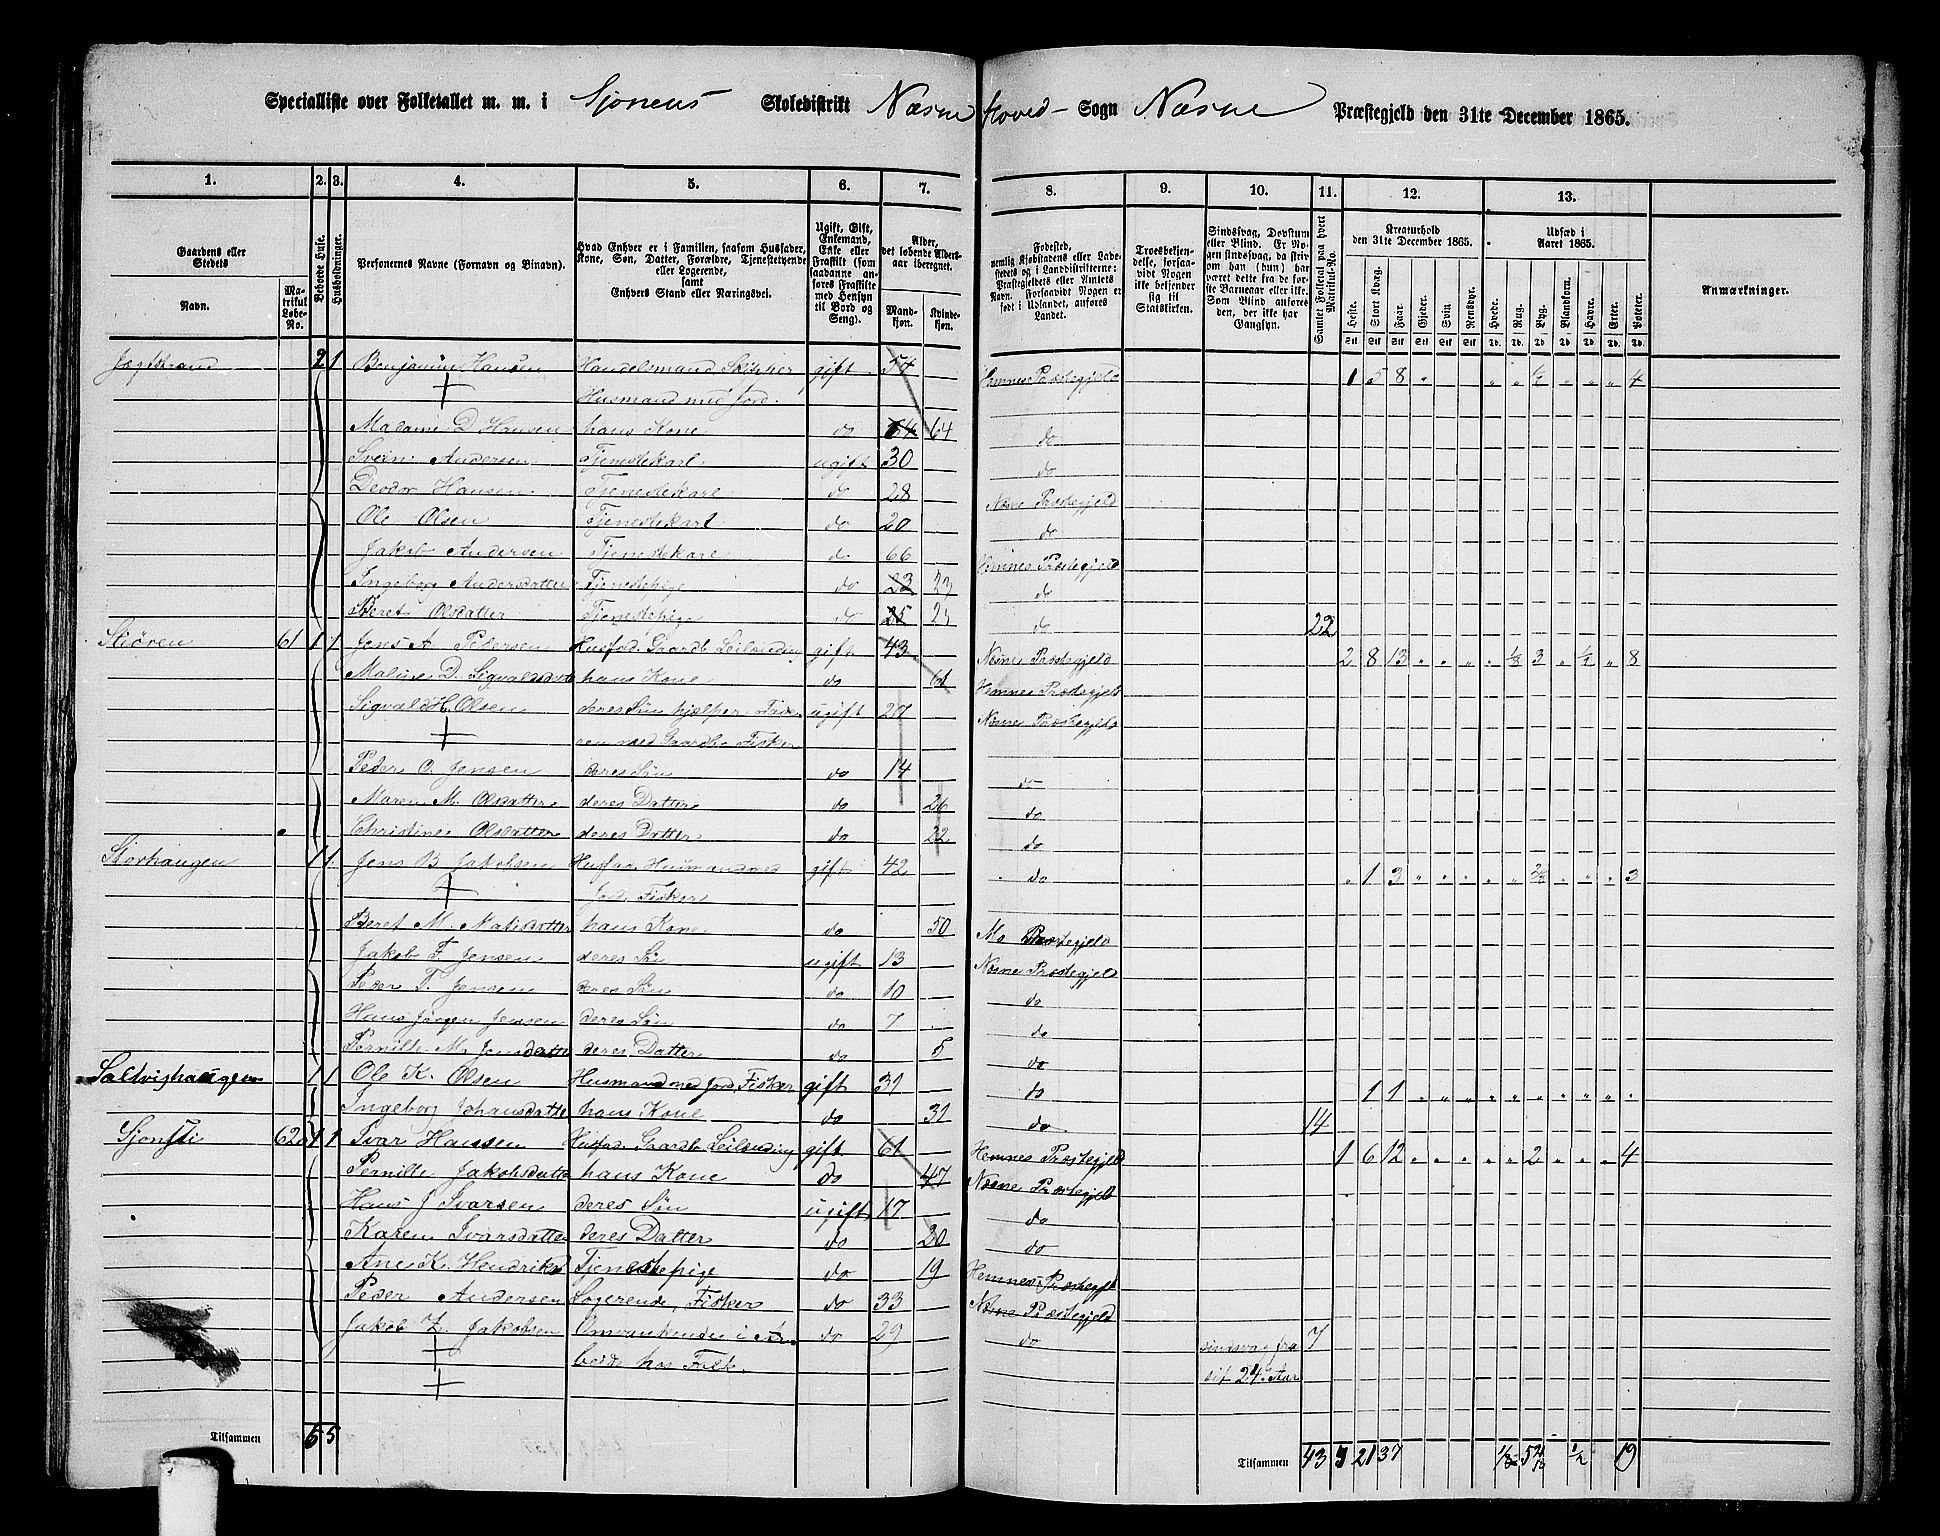 Specialliste over Folketallet m. m. i Sjonens Skoledistrikt Næsne Hoved- Sogn Næsne Præstegjeld den 31te December 1865.
1. 2. 3. 4. 5. 6. 7. 8. 9. 10. 11. 12. 13.
Gaardens eller Stedets Navn. Matrikul Løbe-No.
Beboede Huse.
Husholdninger.
Personernes Navne (Fornavn og Binavn).
Hvad Enhver er i Familien, saasom Husfader, Kone, Søn, Datter, Forældre, Tjenestetyende eller Logerende, samt Enhvers Stand eller Næringsvei.
Ugift, Gift, Enkemand, Enke eller Fraskilt (som saadanne anføres Fraskilte med Hensyn til Bord og Seng).
Alder, det løbende Aldersaar iberegnet. Mandkjøn. Kvindekjøn.
Fødested, nemlig Kjøbstadens eller Ladestedets og i Landdistrikterne: Præstegjeldets eller Amtets Navn. Forsaavidt Nogen er født i Udlandet, anføres Landet.
Troesbekjendelse, forsaavidt Nogen ikke bekjender sig til Statskirken.
Sindssvag, Døvstum eller Blind. Er Nogen sindssvag, da skrives om han (hun) har været dette fra de første Barneaar eller ikke. Som Blind anføres den, der ikke har Gangsyn.
Samlet Folketal paa hvert Matrikul-No.
Kreaturhold den 31te December 1865. Heste. Stort Kvæg. Faar. Gjeder. Svin. Rensdyr.
Udsæd i Aaret 1865. Hvede. Rug. Byg. Blandkorn. Havre. Erter. Poteter.
Anmærkninger.
Jægtstrand 2 1 Benjamin Hansen Handelsmand Skipper gift 54 Hemnes Præstegjeld 1 5 8 " " " ½ " " " 4
Husmand med Jord.
D Hansen hans Kone do 64 64 do
Svein Andersen Tjenestekarl ugift 30 do
Deodor Hansen Tjenestekarl do 28 Næsne Præstegjeld
Ole Olsen Tjenestekarl do 20 do
Jakob Andersen Tjenestekarl do 66 Hemnes Præstegjeld
Ingeborg Andersdatter Tjenestepige do 23 23 do
Beret Olsdatter Tjenestepige do 25 25 do 22
61 1 1 Jens A Pedersen Husfad. Gaardb. Leilending gift 43 Næsne Præstegjeld 2 8 13 " " " " 3 " " 8
D. hans Kone do 61 Hemnes Præstegjeld
Sigvald H. Olsen deres Søn hjælper Fade- ugift 27 Næsne Præstegjeld
ren med Gaardb. Fisker
Peder O. Jensen deres Søn do 14 do
Maren M. Olsdatter deres Datter do 26 do
Christine Olsdatter deres Datter do 22 do
Storhaugen 1 1 Jens B Jakobsen Husfad. Husmand med gift 42 do " 1 3 " " " " " " " " 3
Jord. Fisker
Beret M. hans Kone do 50 Mo Præstegjeld
Jakob F. Jensen deres Søn ugift 13 Næsne Præstegjeld
Peder T. Jensen deres Søn do 10 do
Hans Jørgen Jensen deres Søn do 7 do
Pernille M. Jensdatter deres Datter do 5 do
Saltvighaugen 1 1 Ole K. Olsen Husmand med Jord, Fisker gift 31 do 1 1 " " " " " " " " "
Ingeborg Johansdatter hans Kone do 31 do 14
62 1 1 Ivar Hansen Husfad. Gaardb. Leilending gift 61 Hemnes Præstegjeld 1 6 12 " " " " " 2 " " " 4
Pernille Jakobsdatter hans Kone do 47 Næsne Præstegjeld
Hans J Ivarsen deres Søn ugift 17 do
Karen Ivarsdatter deres Datter do 20 do
Ane K. Hendriksd Tjenestepige do 19 Hemnes Præstegjeld
Peder Andersen Logerende, Fisker do 33 Næsne Præstegjeld
Jakob Z. Jakobsen Omvankende i Ar- do 29 do sindsvag fra 7
beide hos Folk. sit 24. Aar
Tilsammen 6 5
Tilsammen 43 21 37 ½ 19